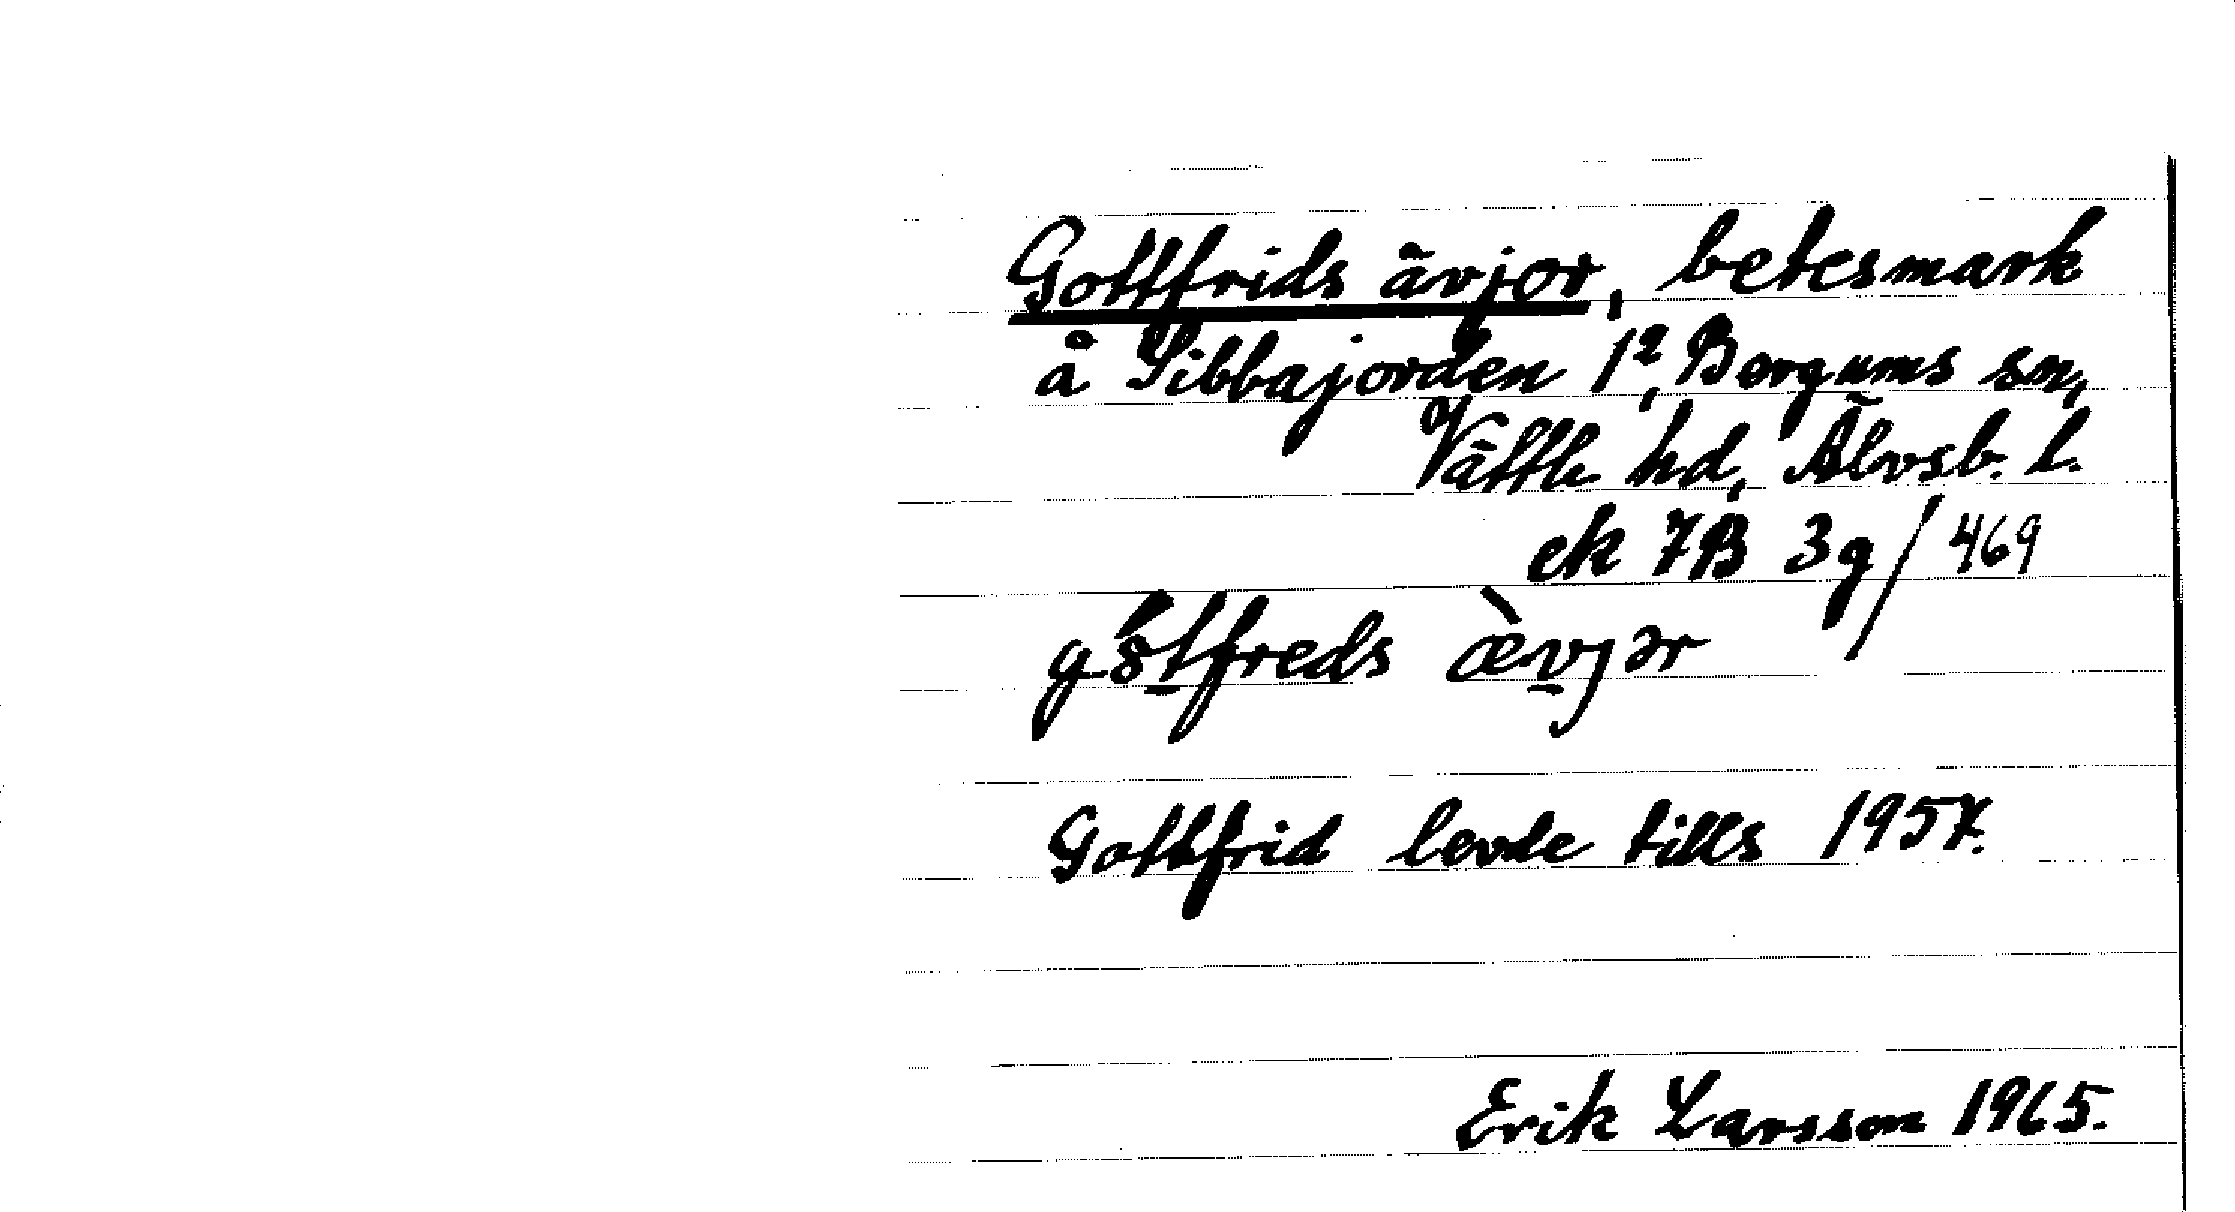 Gottfrids ävjor, betesmark
å Sibbajorden 1², Bergums sn,
Vättle hd, Älvsb. l.
ek 7B 3g/469
gótfreds æ̀vjər
Gottfrid levde tills 1957.
Erik Larsson 1965.